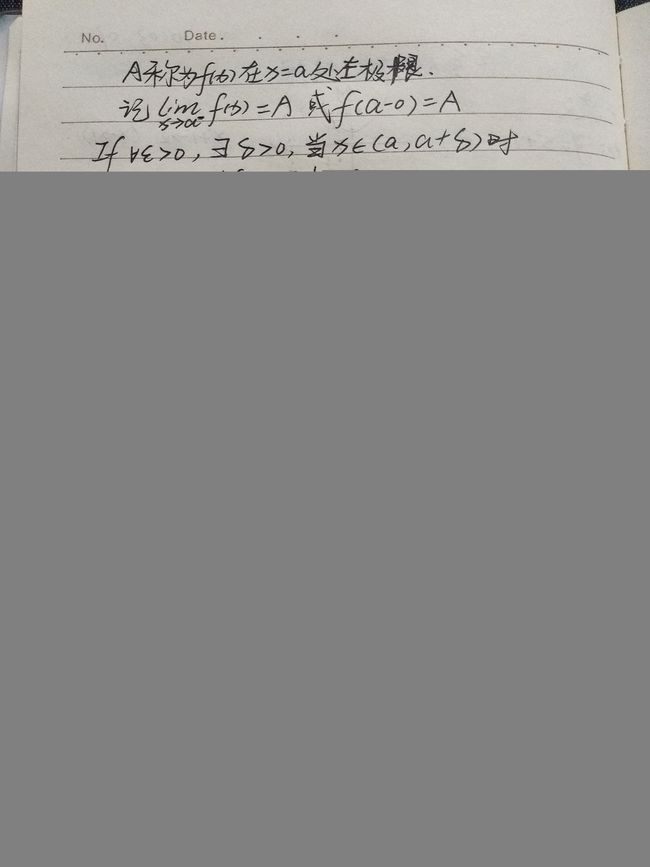 No. Date.
A称为f(x)在x=a处左极限.
记 lim x→a⁻ f(x)=A 或 f(a-0)=A
If ∀ε>0, ∃δ>0, 当x∈(a, a+δ)时